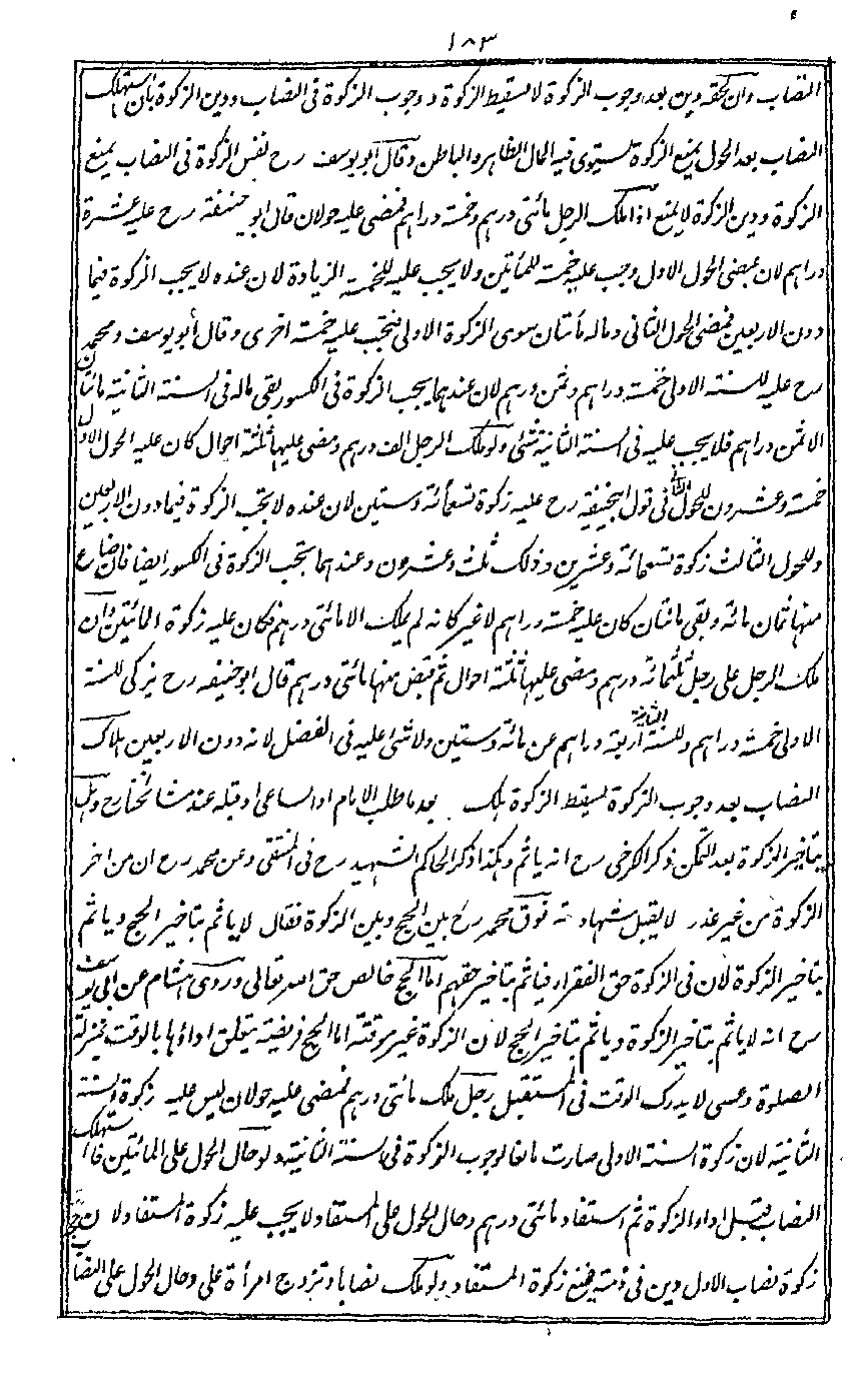 ١٨٣
النصاب وان لحقه دين بعد وجوب الزكوة لا يسقط الزكوة و وجوب الزكوة فى النصاب ودين الزكوة بان استهلك
النصاب بعد الحول يمنع الزكوة يستوى فيه المال الظاهر والباطن وقال ابو يوسف رح نفس الزكوة فى النصاب يمنع
الزكوة ودين الزكوة لا يمنع اذا ملك الرجل مائتى درهم وخمسة دراهم فمضى عليه حولان قال ابو حنيفة رح عليه عشرة
دراهم لان بمضى الحول الاول وجب عليه خمسة للمأتين ولا يجب عليه للخمسة الزيادة لان عنده لا يجب الزكوة فيما
دون الاربعين فمضى الحول الثانى وماله مأتان سوى الزكوة الاولى فتجب عليه خمسة اخرى وقال أبو يوسف ومحمد
رح عليه للسنة الاولى خمسة دراهم وثمن درهم لان عندهما يجب الزكوة فى الكسور بقى ماله فى السنة الثانية مائتان
الا ثمن دراهم فلا يجب عليه فى السنة الثانية شئى ولو ملك الرجل الف درهم ومضى عليها ثلثة احوال كان عليه الحول الاول
خمسة وعشرون للحول الثانى فى قول ابيحنيفة رح عليه زكوة تسعمائة وستين لان عنده لا تجب الزكوة فيما دون الاربعين
وللحول الثالث زكوة تسعمائة وعشرين وذلك ثلث وعشرون وعندهما تجب الزكوة فى الكسور ايضا فان ضاع
منها ثمان مائة وبقى مائتان كان عليه خمسة دراهم لا غير كانه لم يملك الا مائتى درهم فكان عليه زكوة المائتين وان
ملك الرجل على رجل ثلثمائة درهم ومضى عليها ثلثة احوال ثم قبض منها مائتى درهم قال ابو حنيفه رح يزكى للسنة
الاولى خمسة دراهم وللسنة الثانية اربعة دراهم عن مائة وستين ولا شئ عليه فى الفضل لانه دون الاربعين هلاك
النصاب بعد وجوب الزكوة يسقط الزكوة هلك بعد ما طلب الامام او الساعى او قبله عند مشائخنا رح وهل
يتاخير الزكوة بعد التمكن ذكر الكرخى رح انه ياثم وهكذا ذكر الحاكم الشهيد رح فى المنتقى وعن محمد رح ان من اخر
الزكوة من غير عذر لا يقبل شهادته فوق محمد رح بين الحج وبين الزكوة فقال لا ياثم بتاخير الحج وياثم
بتاخير الزكوة لان فى الزكوة حق الفقراء فياثم بتاخير حقهم اما الحج خالص حق الله تعالى وروى هشام عن ابى يوسف
رح انه لا ياثم بتاخير الزكوة وياثم بتاخير الحج لان الزكوة غير موقتة اما الحج فريضته يتعلق اداؤها بالوقت بمنزلة
الصلوة وعسى لا يدرك الوقت فى المستقبل رجل ملك مائتى درهم فمضى عليه حولان ليس عليه زكوة السنة
الثانية لان زكوة السنة الاولى صارت مانعا لوجوب الزكوة فى السنة الثانية ولو حال الحول على المائتين فاستهلك
النصاب قبل اداء الزكوة ثم استفاد مائتى درهم وحال الحول على المستفاد لا يجب عليه زكوة المستفاد لان
زكوة نصاب الاول دين فى ذمته فيمنع زكوة المستفاد ولو ملك نصابا وتزوج امرأة على وحال الحول على النصاب